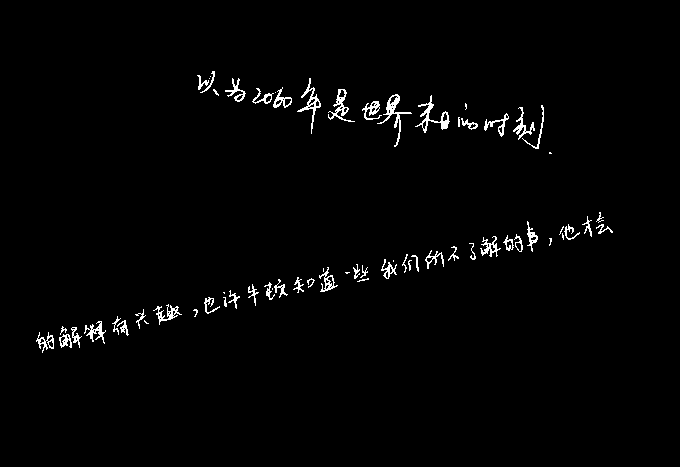 以为2060年是世界末日的时刻.
的解释有兴趣,也许牛顿知道一些我们所不了解的事,他才会